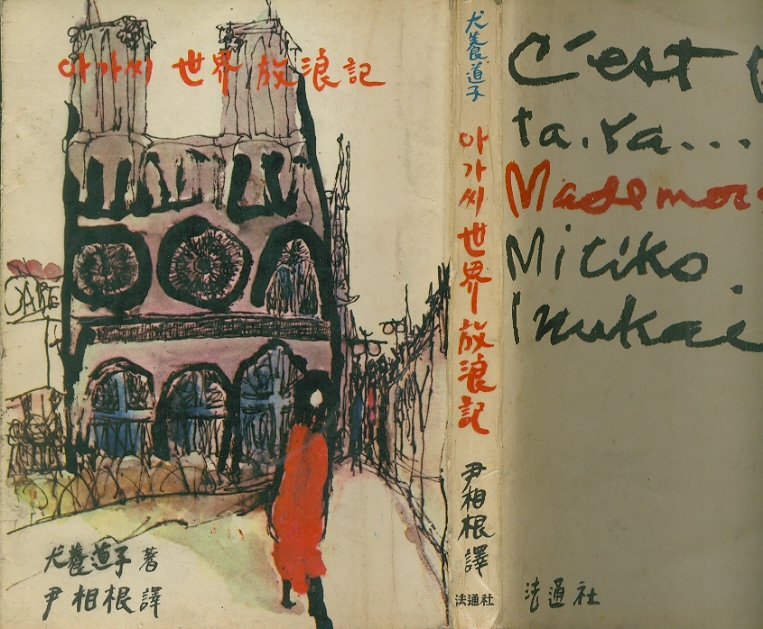 아가씨 世界 放浪記
CAFE
犬養道子 著
尹相根 譯
犬養道子
아가씨 世界 放浪記
尹相根 譯
法通社
C'est
ta.ra...
Mademoi
Mitiko.
Inukai
法通社